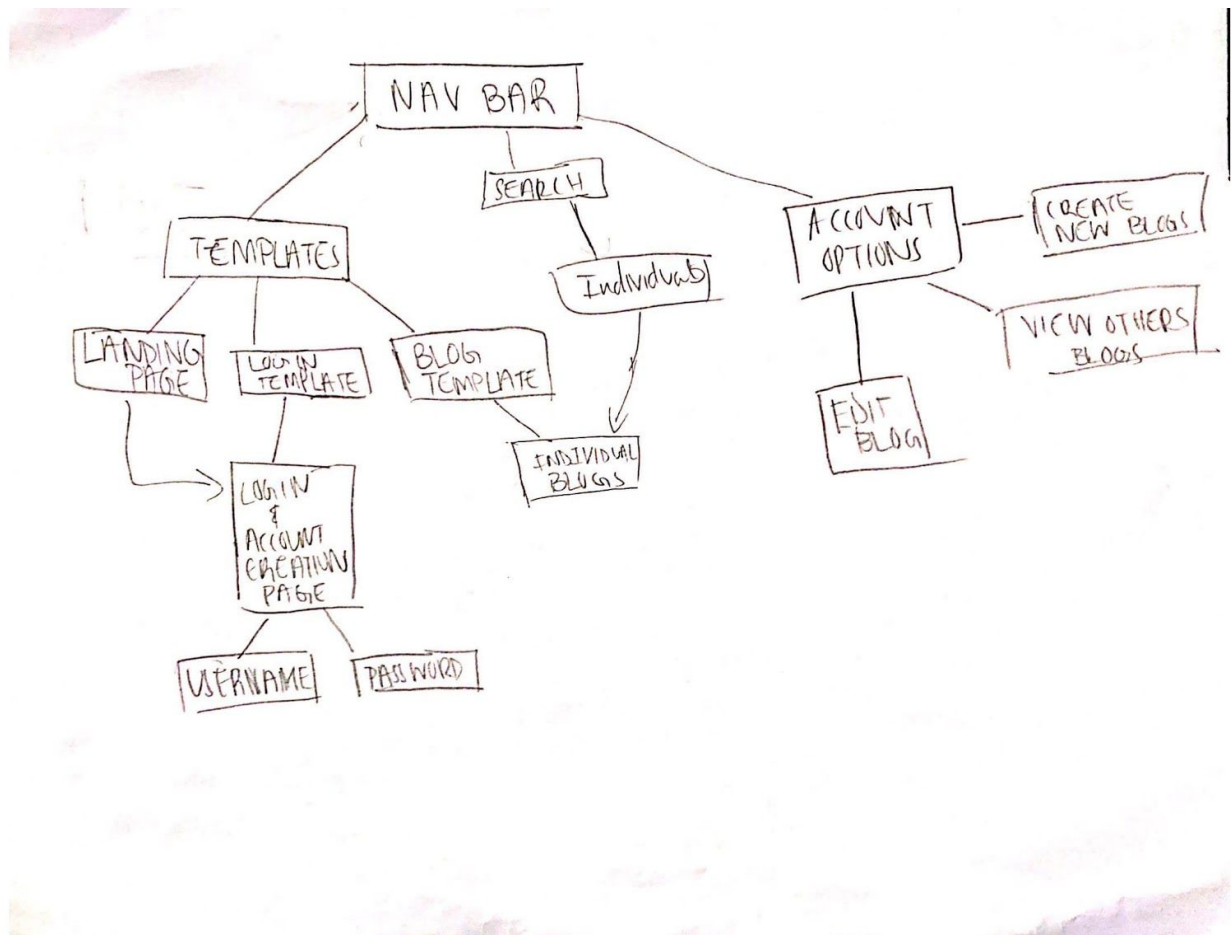 NAV BAR
SEARCH
TEMPLATES
Individuals
ACCOUNT
OPTIONS
CREATE
NEW BLOGS
VIEW OTHERS
BLOGS
EDIT
BLOG
LANDING
PAGE
LOGIN
TEMPLATE
BLOG
TEMPLATE
INDIVIDUAL
BLOGS
LOGIN
&
ACCOUNT
CREATION
PAGE
USERNAME
PASSWORD